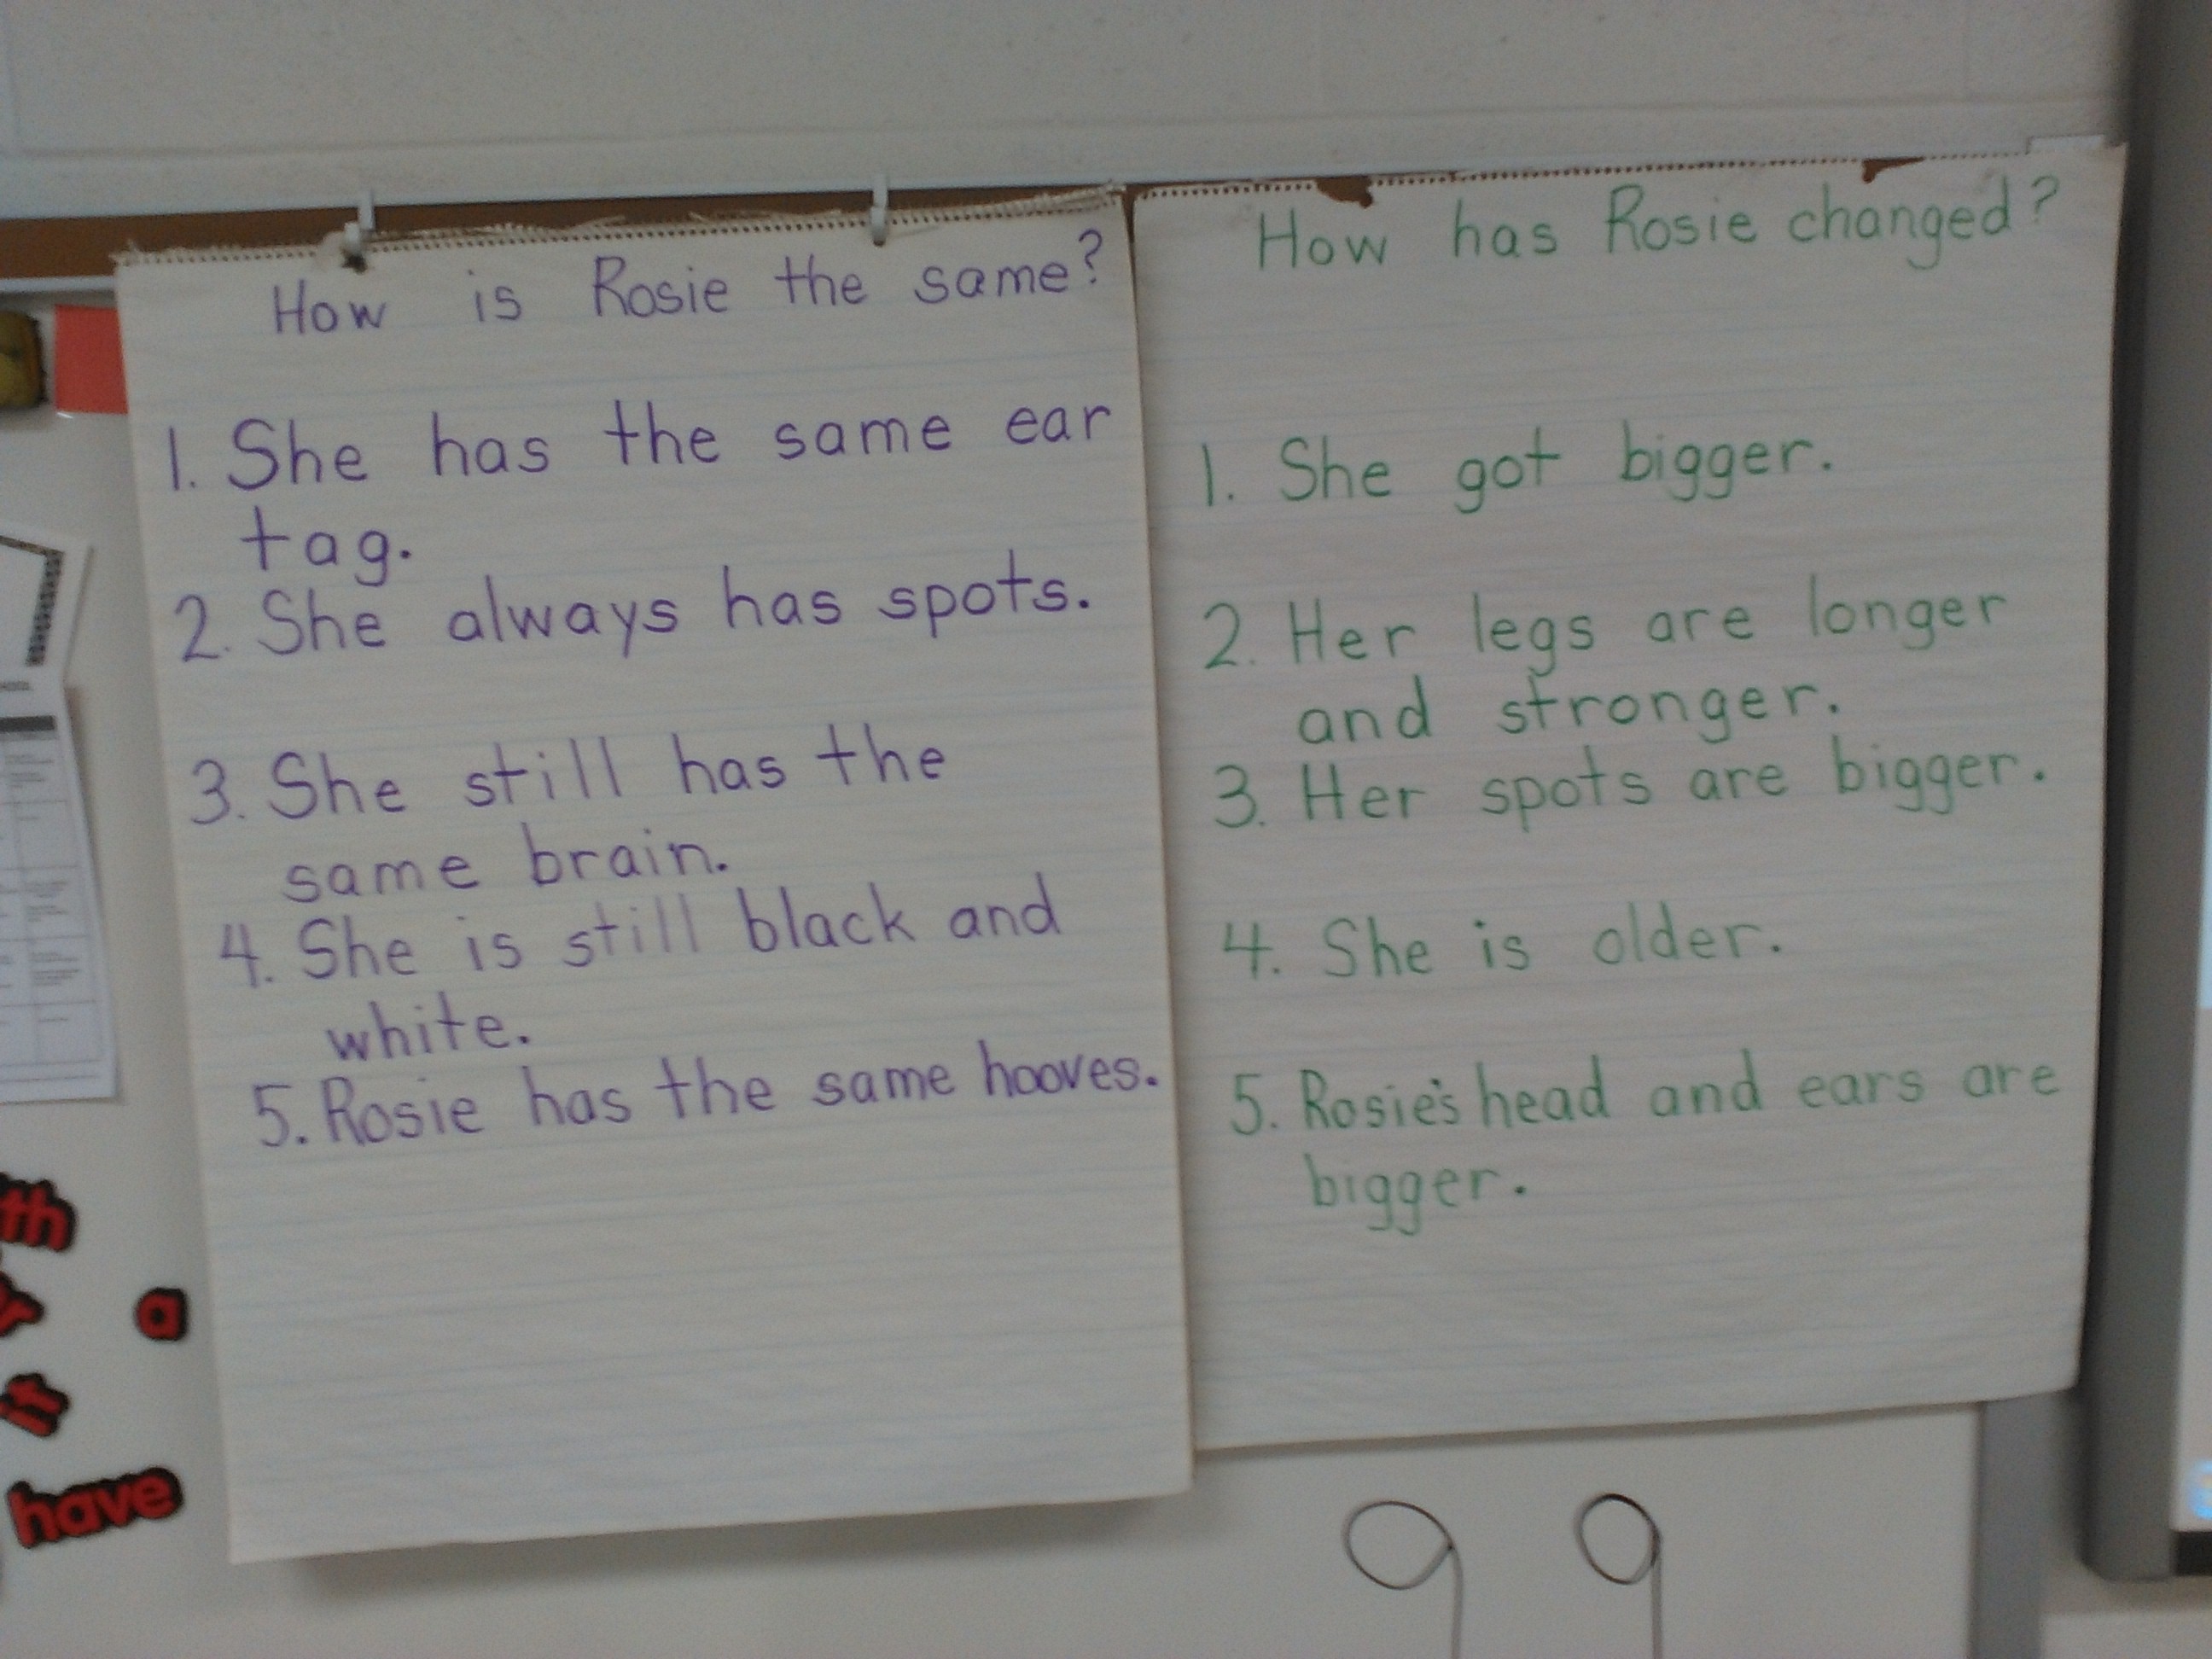 How is Rosie the same?
1. She has the same ear
tag.
2. She always has spots.
3. She still has the
same brain.
4. She is still black and
white.
5. Rosie has the same hooves.
How has Rosie changed?
1. She got bigger.
2. Her legs are longer
and stronger.
3. Her spots are bigger.
4. She is older.
5. Rosie's head and ears are
bigger.
th
a
it
have
9 9